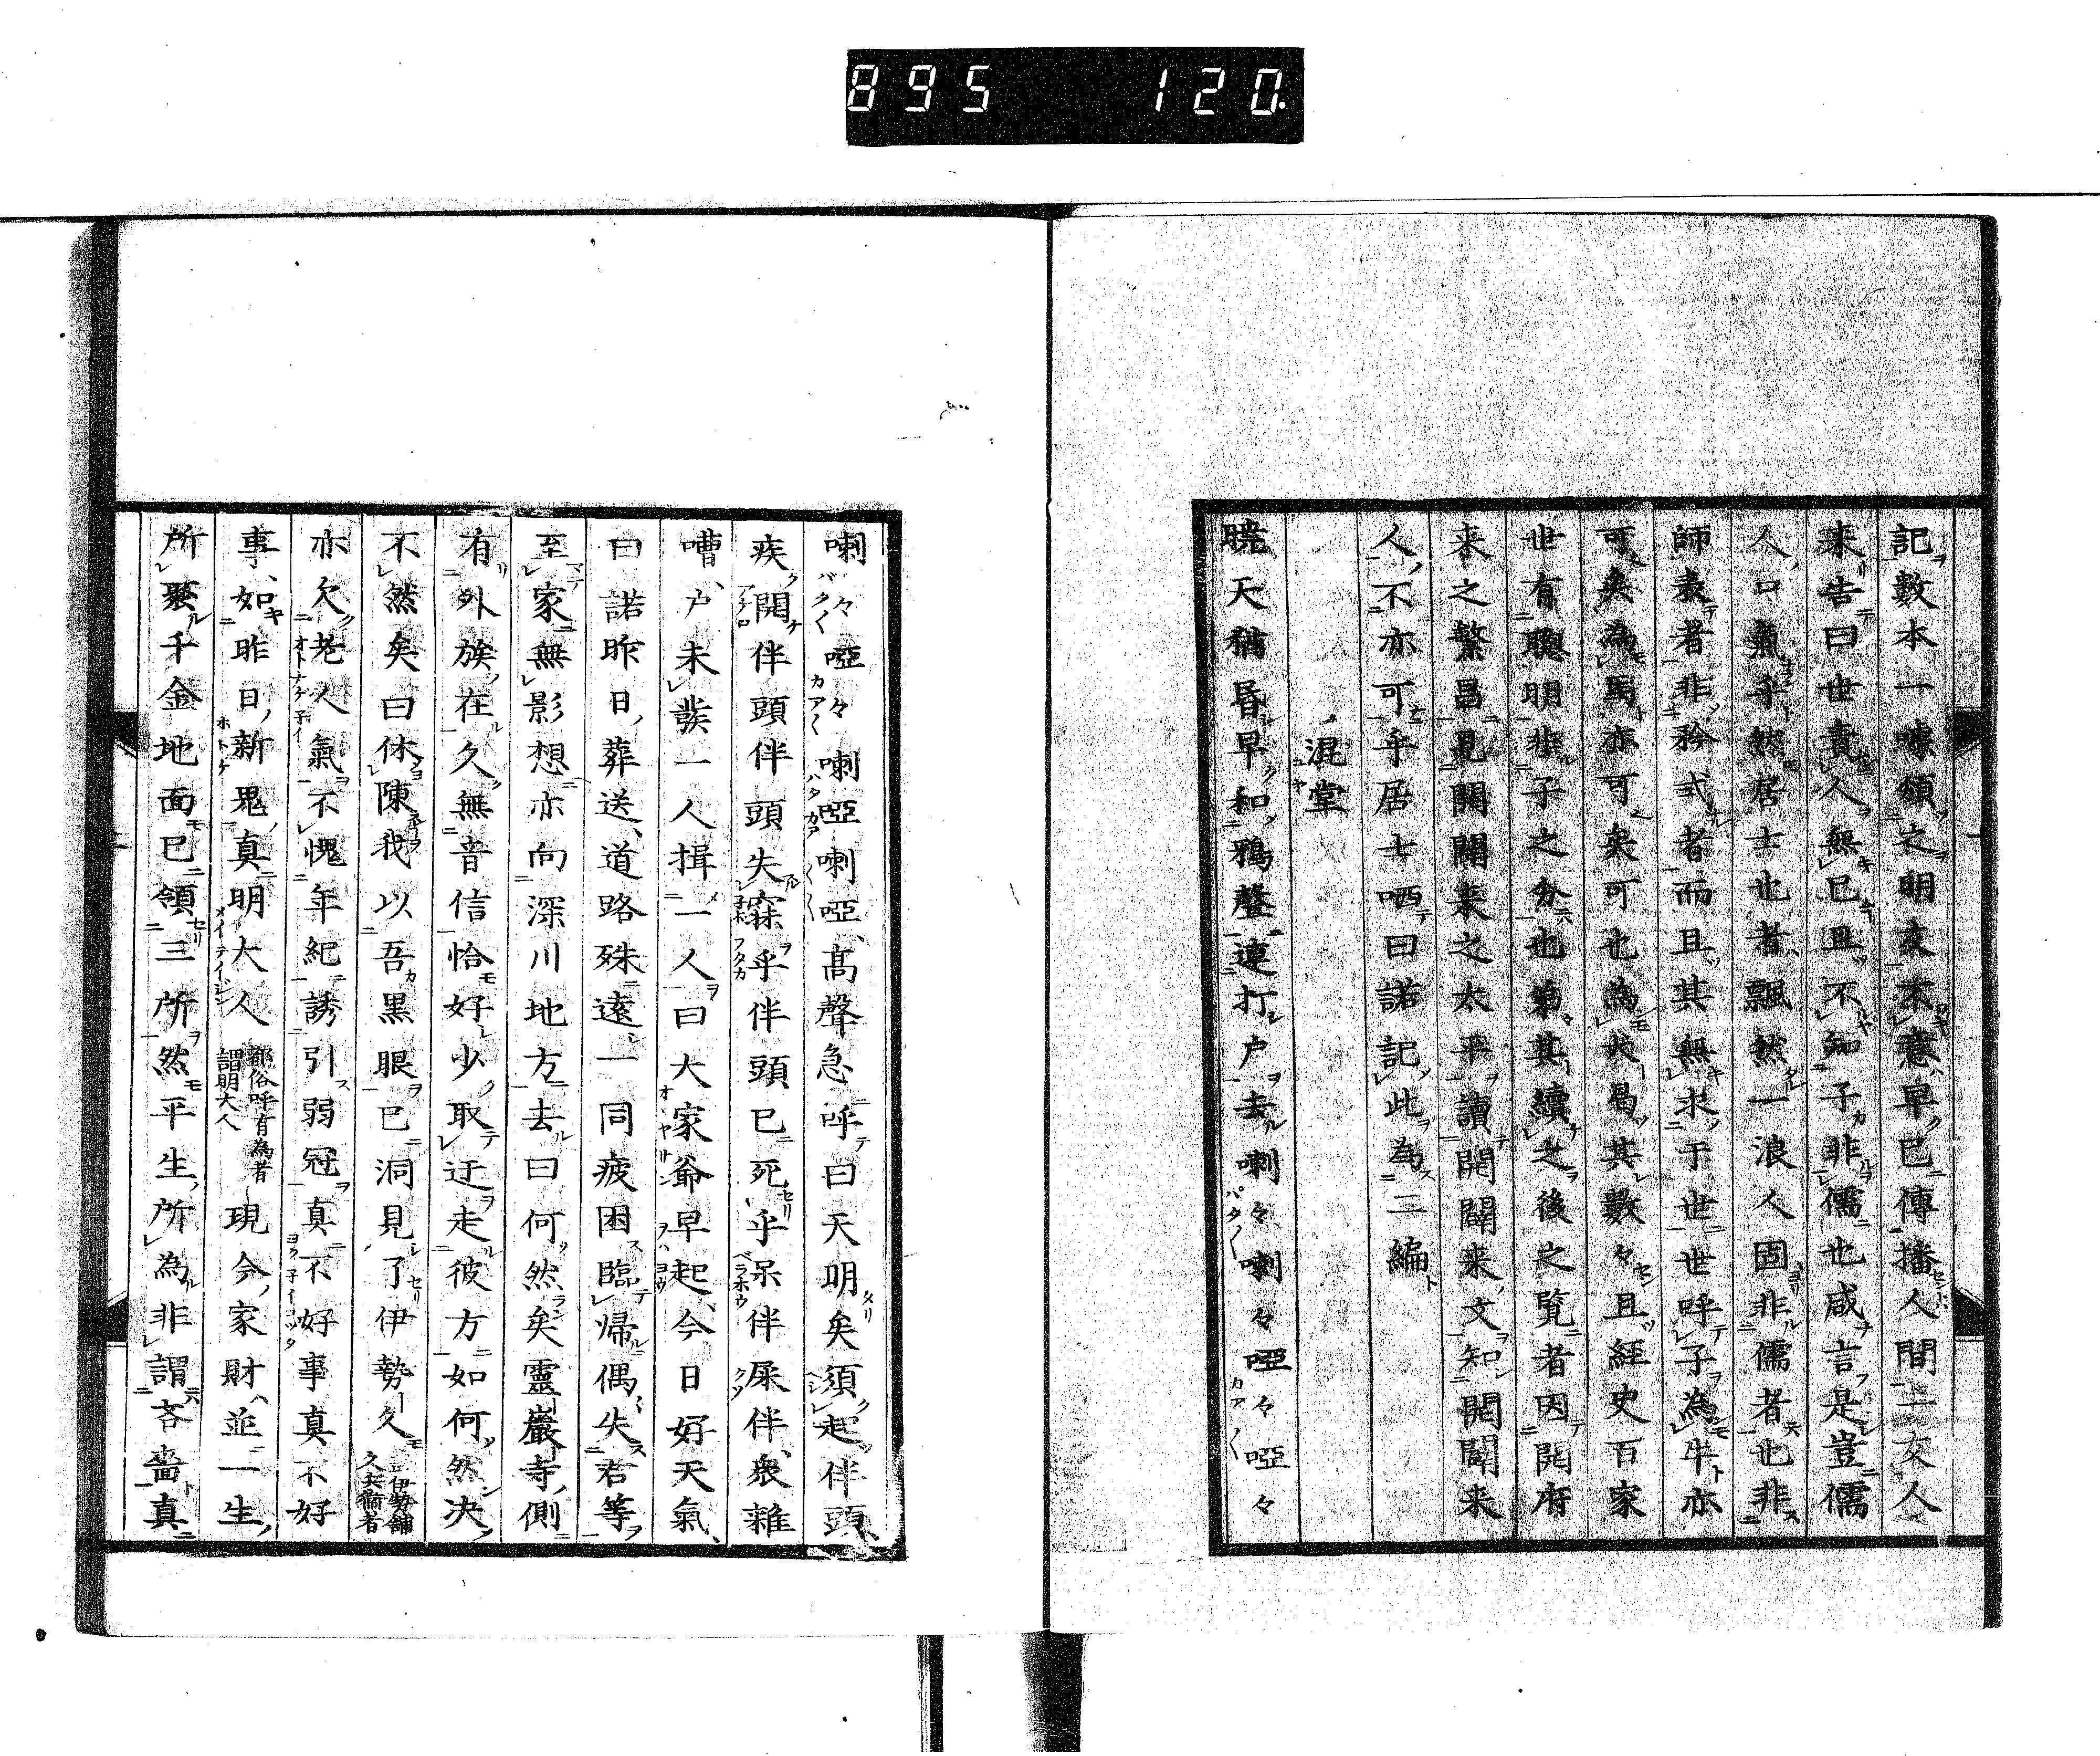 895 120.
記數本一噱頒之明友不意早已傳播人間一友人
来告曰世責人無已且不知子非儒也咸言是豈儒
人口氣乎然居士也者飄然一浪人固非儒者也非
師表者非矜式者而且其無求于世世呼子為牛亦
可矣為馬亦可矣可也為犬曷其數々且経史百家
世有聰明非子之分也蒭其續之後之覧者因開府
来之繁昌見開闢来之太平讀開闢来文知開闢来
人不亦可乎居士哂曰諾記此為二編
混堂
暁天猶昏早和鴉聲連打戸去喇々喇々啞々啞々
喇々啞々喇啞喇啞髙聲急呼曰天明矣須起伴頭
疾開伴頭伴頭失寐乎伴頭已死乎呆伴屎伴衆雜
嘈戸未發一人揖一人曰大家爺早起今日好天氣
曰諾昨日葬送道路殊遠一同疲困臨帰偶失君等
至家無影想亦向深川地方去曰何然矣靈巖寺側
有外族在久無音信恰好少取迂走彼方如何然決
不然矣曰休陳我以吾黒眼已洞見了伊勢久 伊勢舗久兵衛者
亦欠老人氣不愧年紀誘引弱冠真不好事真不好
事如昨日新鬼真明大人 都俗呼有為者謂明大人 現今家財並一生
所聚千金地面已領三所然平生所為非謂吝嗇真